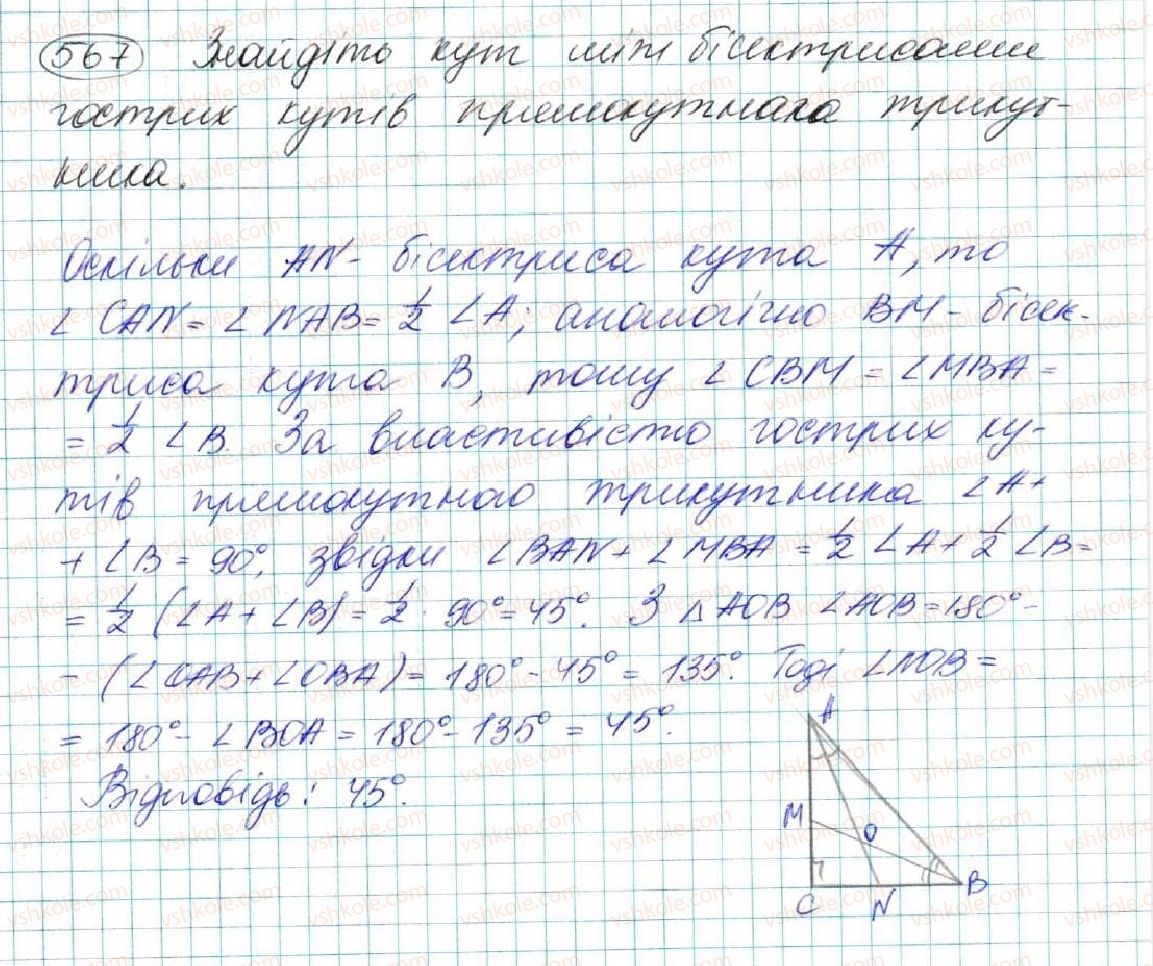 567 Знайдіть кут між бісектрисами
гострих кутів прямокутного трикут-
ника.
Оскільки AN - бісектриса кута A, то
∠CAN = ∠NAB = 1/2 ∠A; аналогічно BM - бісек-
триса кута B, тому ∠CBM = ∠MBA =
= 1/2 ∠B. За властивістю гострих ку-
тів прямокутного трикутника ∠A +
+ ∠B = 90°, звідки ∠BAN + ∠MBA = 1/2 ∠A + 1/2 ∠B =
= 1/2 (∠A + ∠B) = 1/2 · 90° = 45°. З △AOB ∠AOB = 180° -
- (∠OAB + ∠OBA) = 180° - 45° = 135°. Тоді ∠NOB =
= 180° - ∠BOA = 180° - 135° = 45°.
Відповідь: 45°.
A
M
O
B
C
N
vshkole.com